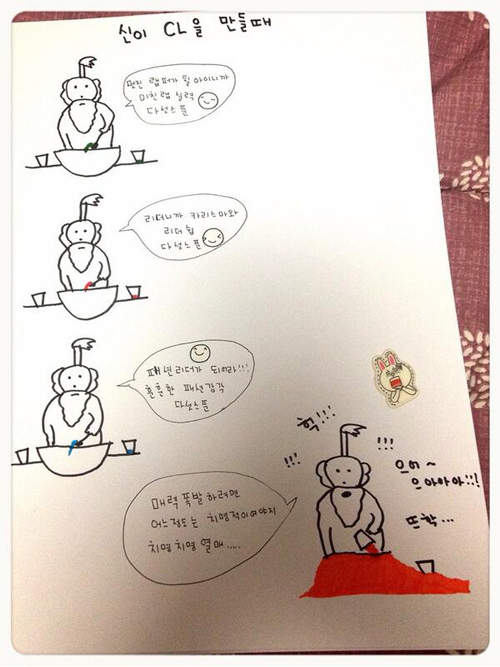 신이 CL을 만들때
멋진 랩퍼가 될 아이니까
미친랩 실력
다섯스푼
리더니까 카리스마와
리더쉽
다섯스푼
패션리더가 되어라!!!
훈훈한 패션감각
다섯스푼
헉!!!
!!!
!!!
으어~
으아아아!!!
뜨학...
매력 폭발 하려면
어느정도는 치명적이여야지
치명치명 열매.....